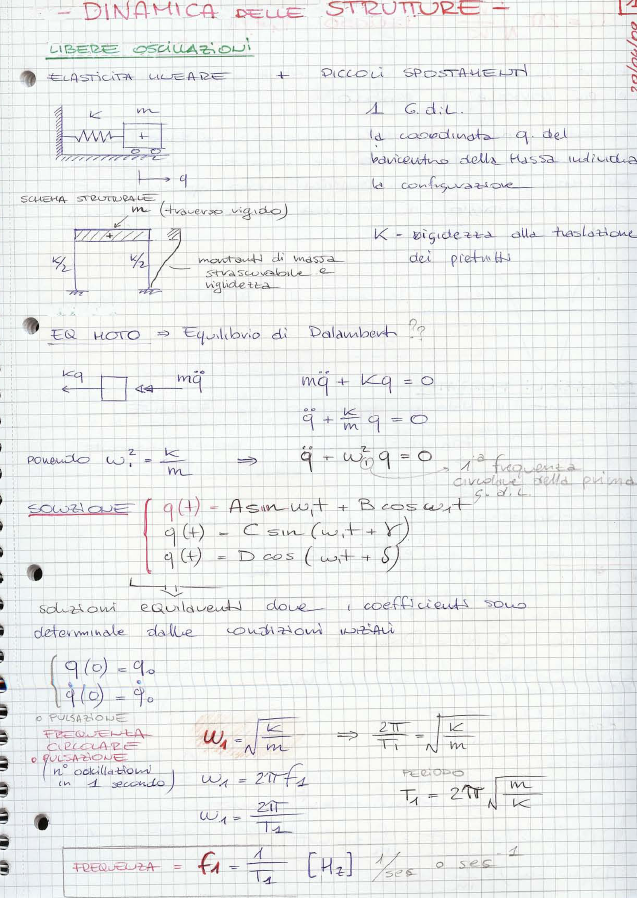 - DINAMICA DELLE STRUTTURE -
1
LIBERE OSCILLAZIONI
ELASTICITA LINEARE + PICCOLI SPOSTAMENTI
K m
q
1 G.d.L.
la coordinata q. del
baricentro della Massa individua
la configurazione
SCHEMA STRUTTURALE
m (traverso rigido)
K/2 K/2
montanti di massa
strascurabile e
rigidezza
K - rigidezza alla traslazione
dei pietritti
EQ MOTO ⇒ Equilibrio di Dalambert ??
Kq mq̈
mq̈ + Kq = 0
q̈ + K/m q = 0
PONENDO ω₁² = K/m ⇒ q̈ + ω₁² q = 0
1ª frequenza
circolare della prima
g.d.L.
SOLUZIONE q(t) = A sin ω₁t + B cos ω₁t
q(t) = C sin (ω₁t + γ)
q(t) = D cos (ω₁t + δ)
soluzioni equilaventi dove i coefficienti sono
determinale dalle condizioni iniziali
q(0) = q₀
q̇(0) = q̇₀
o PULSAZIONE
FREQUENZA
CIRCOLARE
o PULSAZIONE
(n° oscillazioni
in 1 secondo)
ω₁ = √K/m ⇒ 2π/T₁ = √K/m
ω₁ = 2πf₁
PERIODO
T₁ = 2π √m/K
ω₁ = 2π/T₁
FREQUENZA = f₁ = 1/T₁ [Hz] 1/seg o seg⁻¹